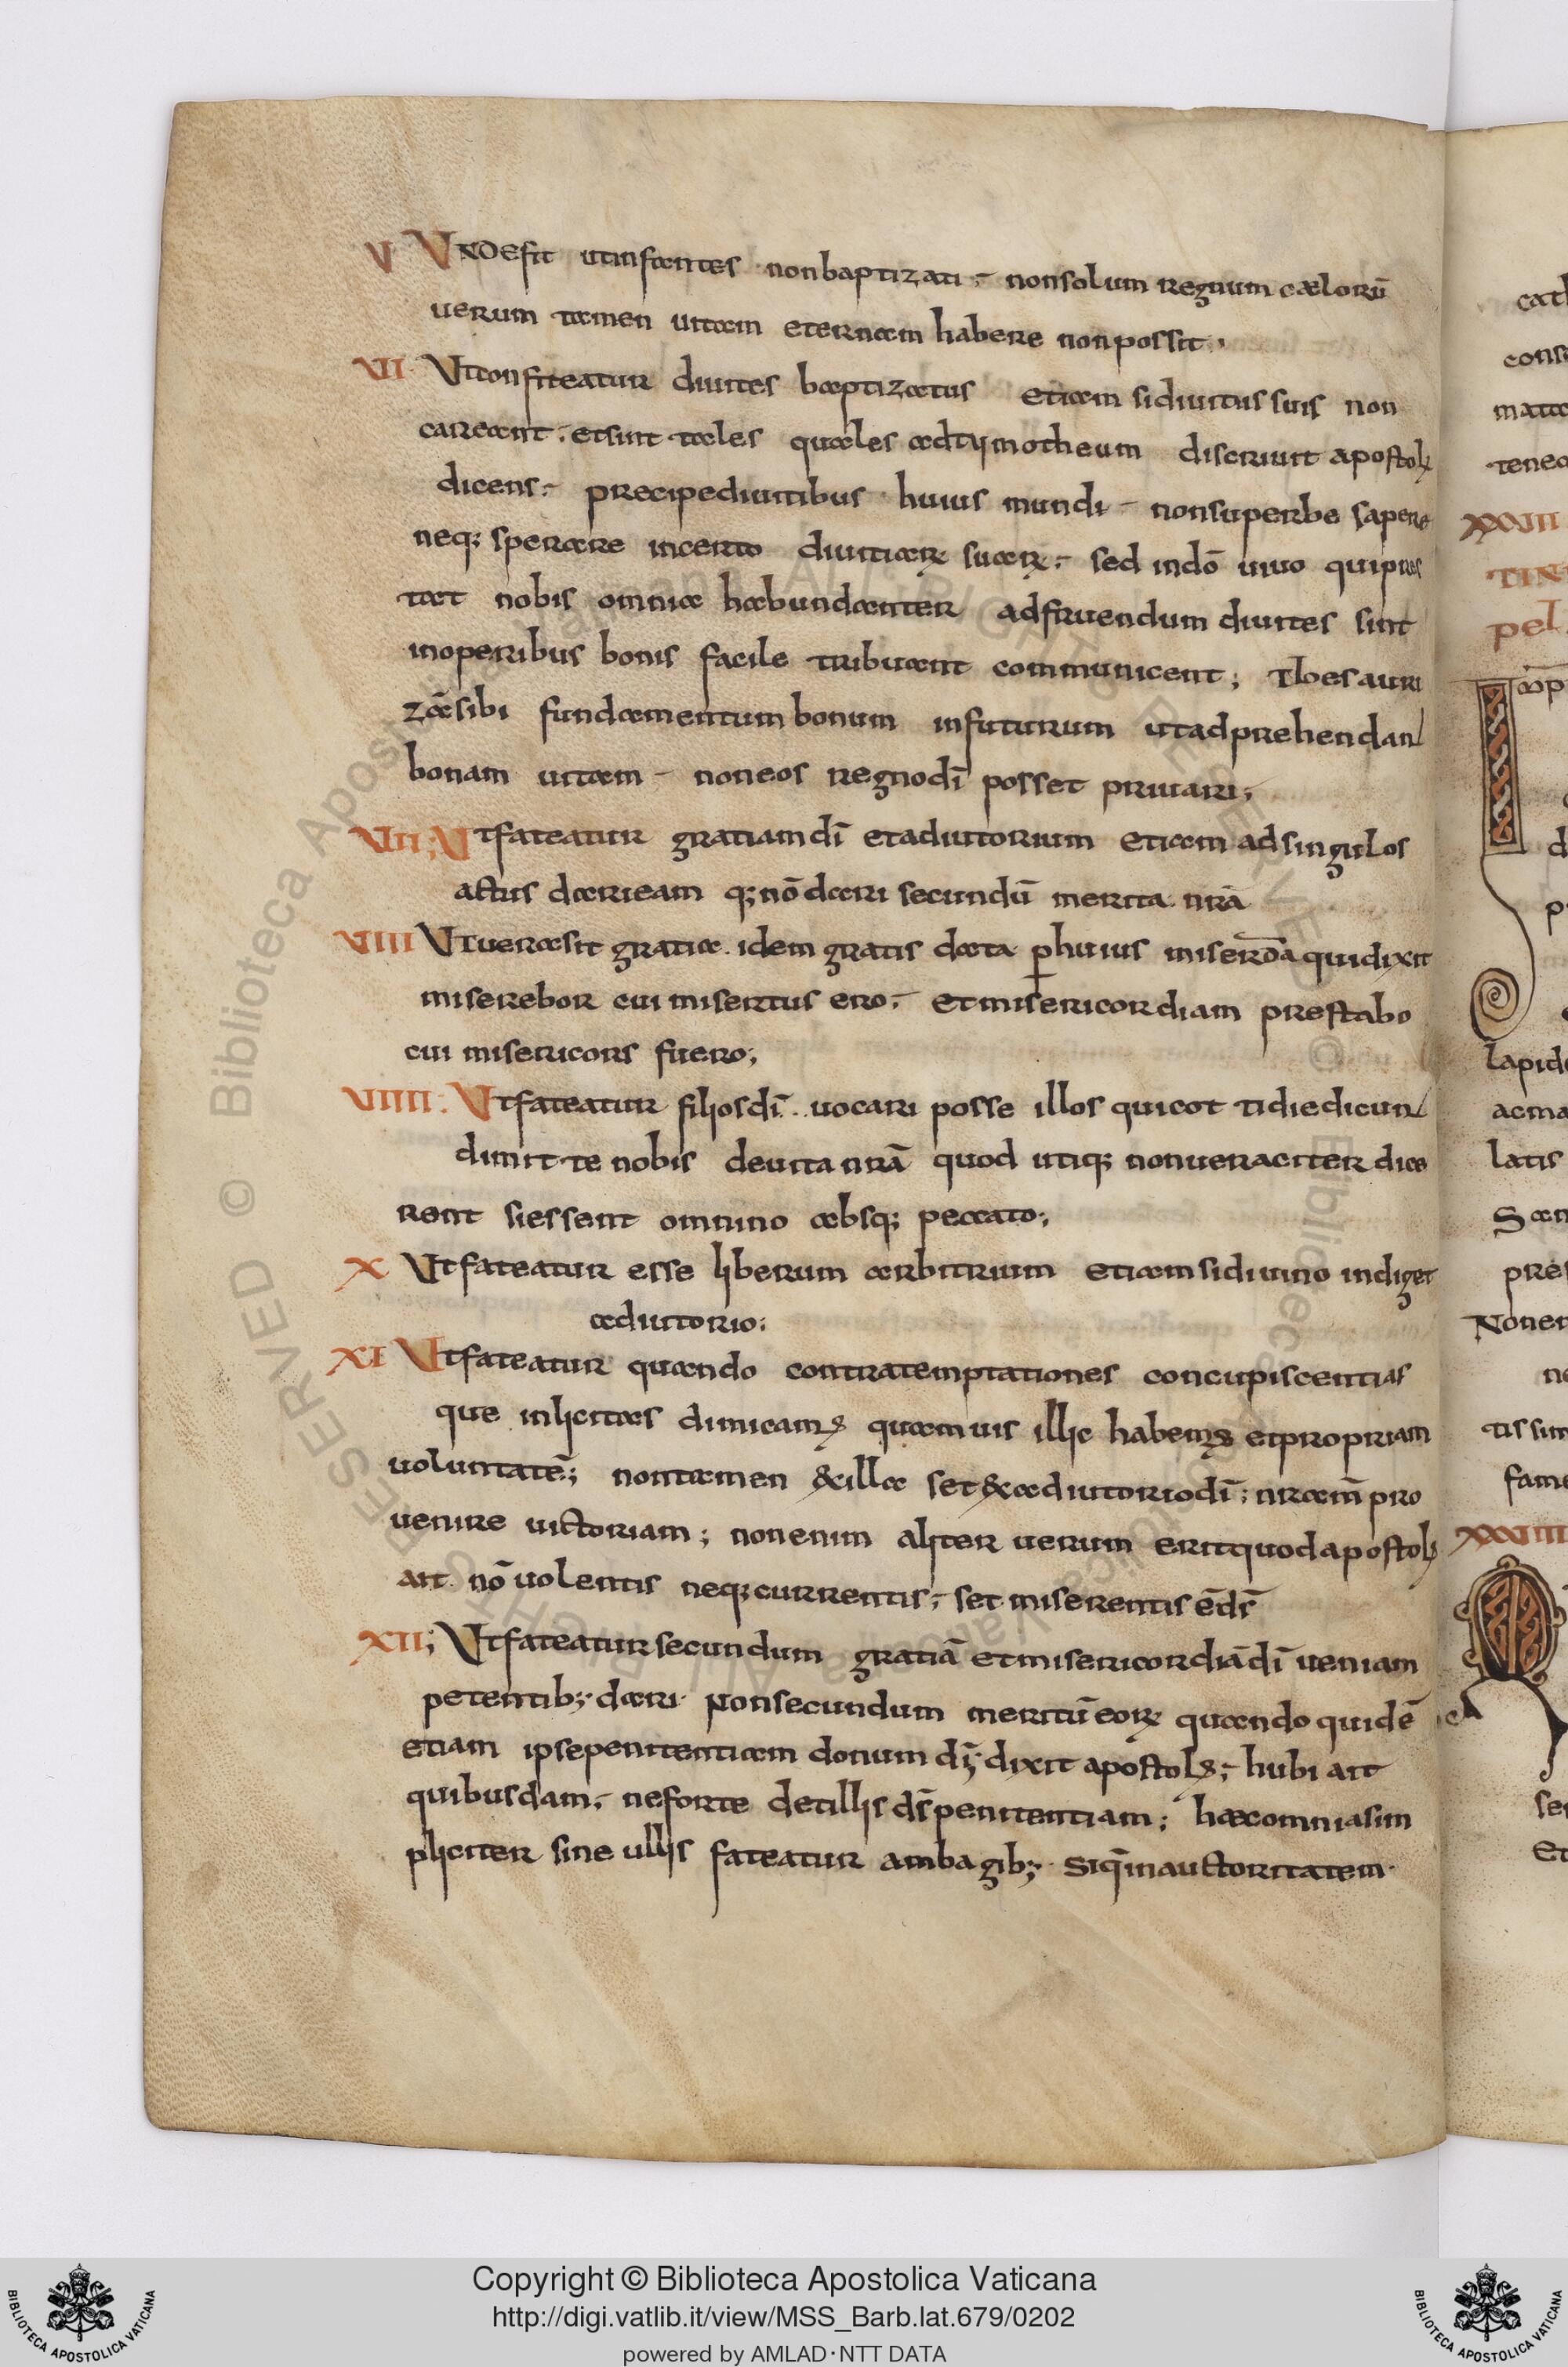 V VNDEfit ut infantes non baptizati; non solum regnum cælorū
uerum tamen uitam eternam habere non possit.
VII Vt confiteatur diuites baptizatus etiam si diuitiis suis non
careant. et sint tales quales ad tymotheum discriuit apostolꝰ
dicens; precipe diuitibus huius mundi non superbe sapere
neq; sperare incerto diuitiaꝝ suaꝝ; sed in dō uiuo qui pres
tat nobis omnia habundanter ad fruendum diuites sint
in operibus bonis facile tribuant communicent; Thesauri
zāt sibi fundamentum bonum in futurum ut adprehendant
bonam uitam non eos regno dī posset priuari;
VII; Vt fateatur gratiam dī et adiutorium etiam ad singulos
actus dari eam q; nō dari secundū merita nrā
VIII VT uera sit gratia. idem gratis data ꝑ huius miserdā qui dixit
miserebor cui misertus ero; et misericordiam prestabo
cui misericors fuero;
VIIII. Vt fateatur filios dī. uocari posse illos qui cottidie dicunt
dimitte nobis de uita nrā quod utiq; non ueraciter dice
rent si essent omnino absq; peccato;
X Vt fateatur esse liberum arbitrium etiam si diuino indiget
adiutorio;
XI Vt fateatur quando contra temptationes concupiscentias
que inlicitas dimicamꝰ quamuis illic habemꝰ et propriam
uoluntatē; non tamen ex illa set ex adiutorio dī; nrām pro
uenire uictoriam; non enim aliter uerum erit quod apostolꝰ
ait nō uolentis neq; currentis; set miserentis ē dī
XII; Vt fateatur secundum gratiā et misericordiā dī ueniam
petentib; dari non secundum meritū eoꝝ quando quidē
etiam ipse penitentiam donum dī; dixit apostolꝰ; hubi ait
quibusdam; ne forte det illis ds̄ penitentiam; hæc omnia sim
pliciter sine ullis fateatur ambagib; Siq̄ in auctoritatem
cath
cons
matæ
tenea
XXXIII
TIN
pel
lapide
acma
latis
San
pres
Noner
ne
tissim
fame
XXXIIII
ser
Et
Copyright © Biblioteca Apostolica Vaticana
http://digi.vatlib.it/view/MSS_Barb.lat.679/0202
powered by AMLAD·NTT DATA
BIBLIOTECA APOSTOLICA VATICANA
BIBLIOTECA APOSTOLICA VATICANA